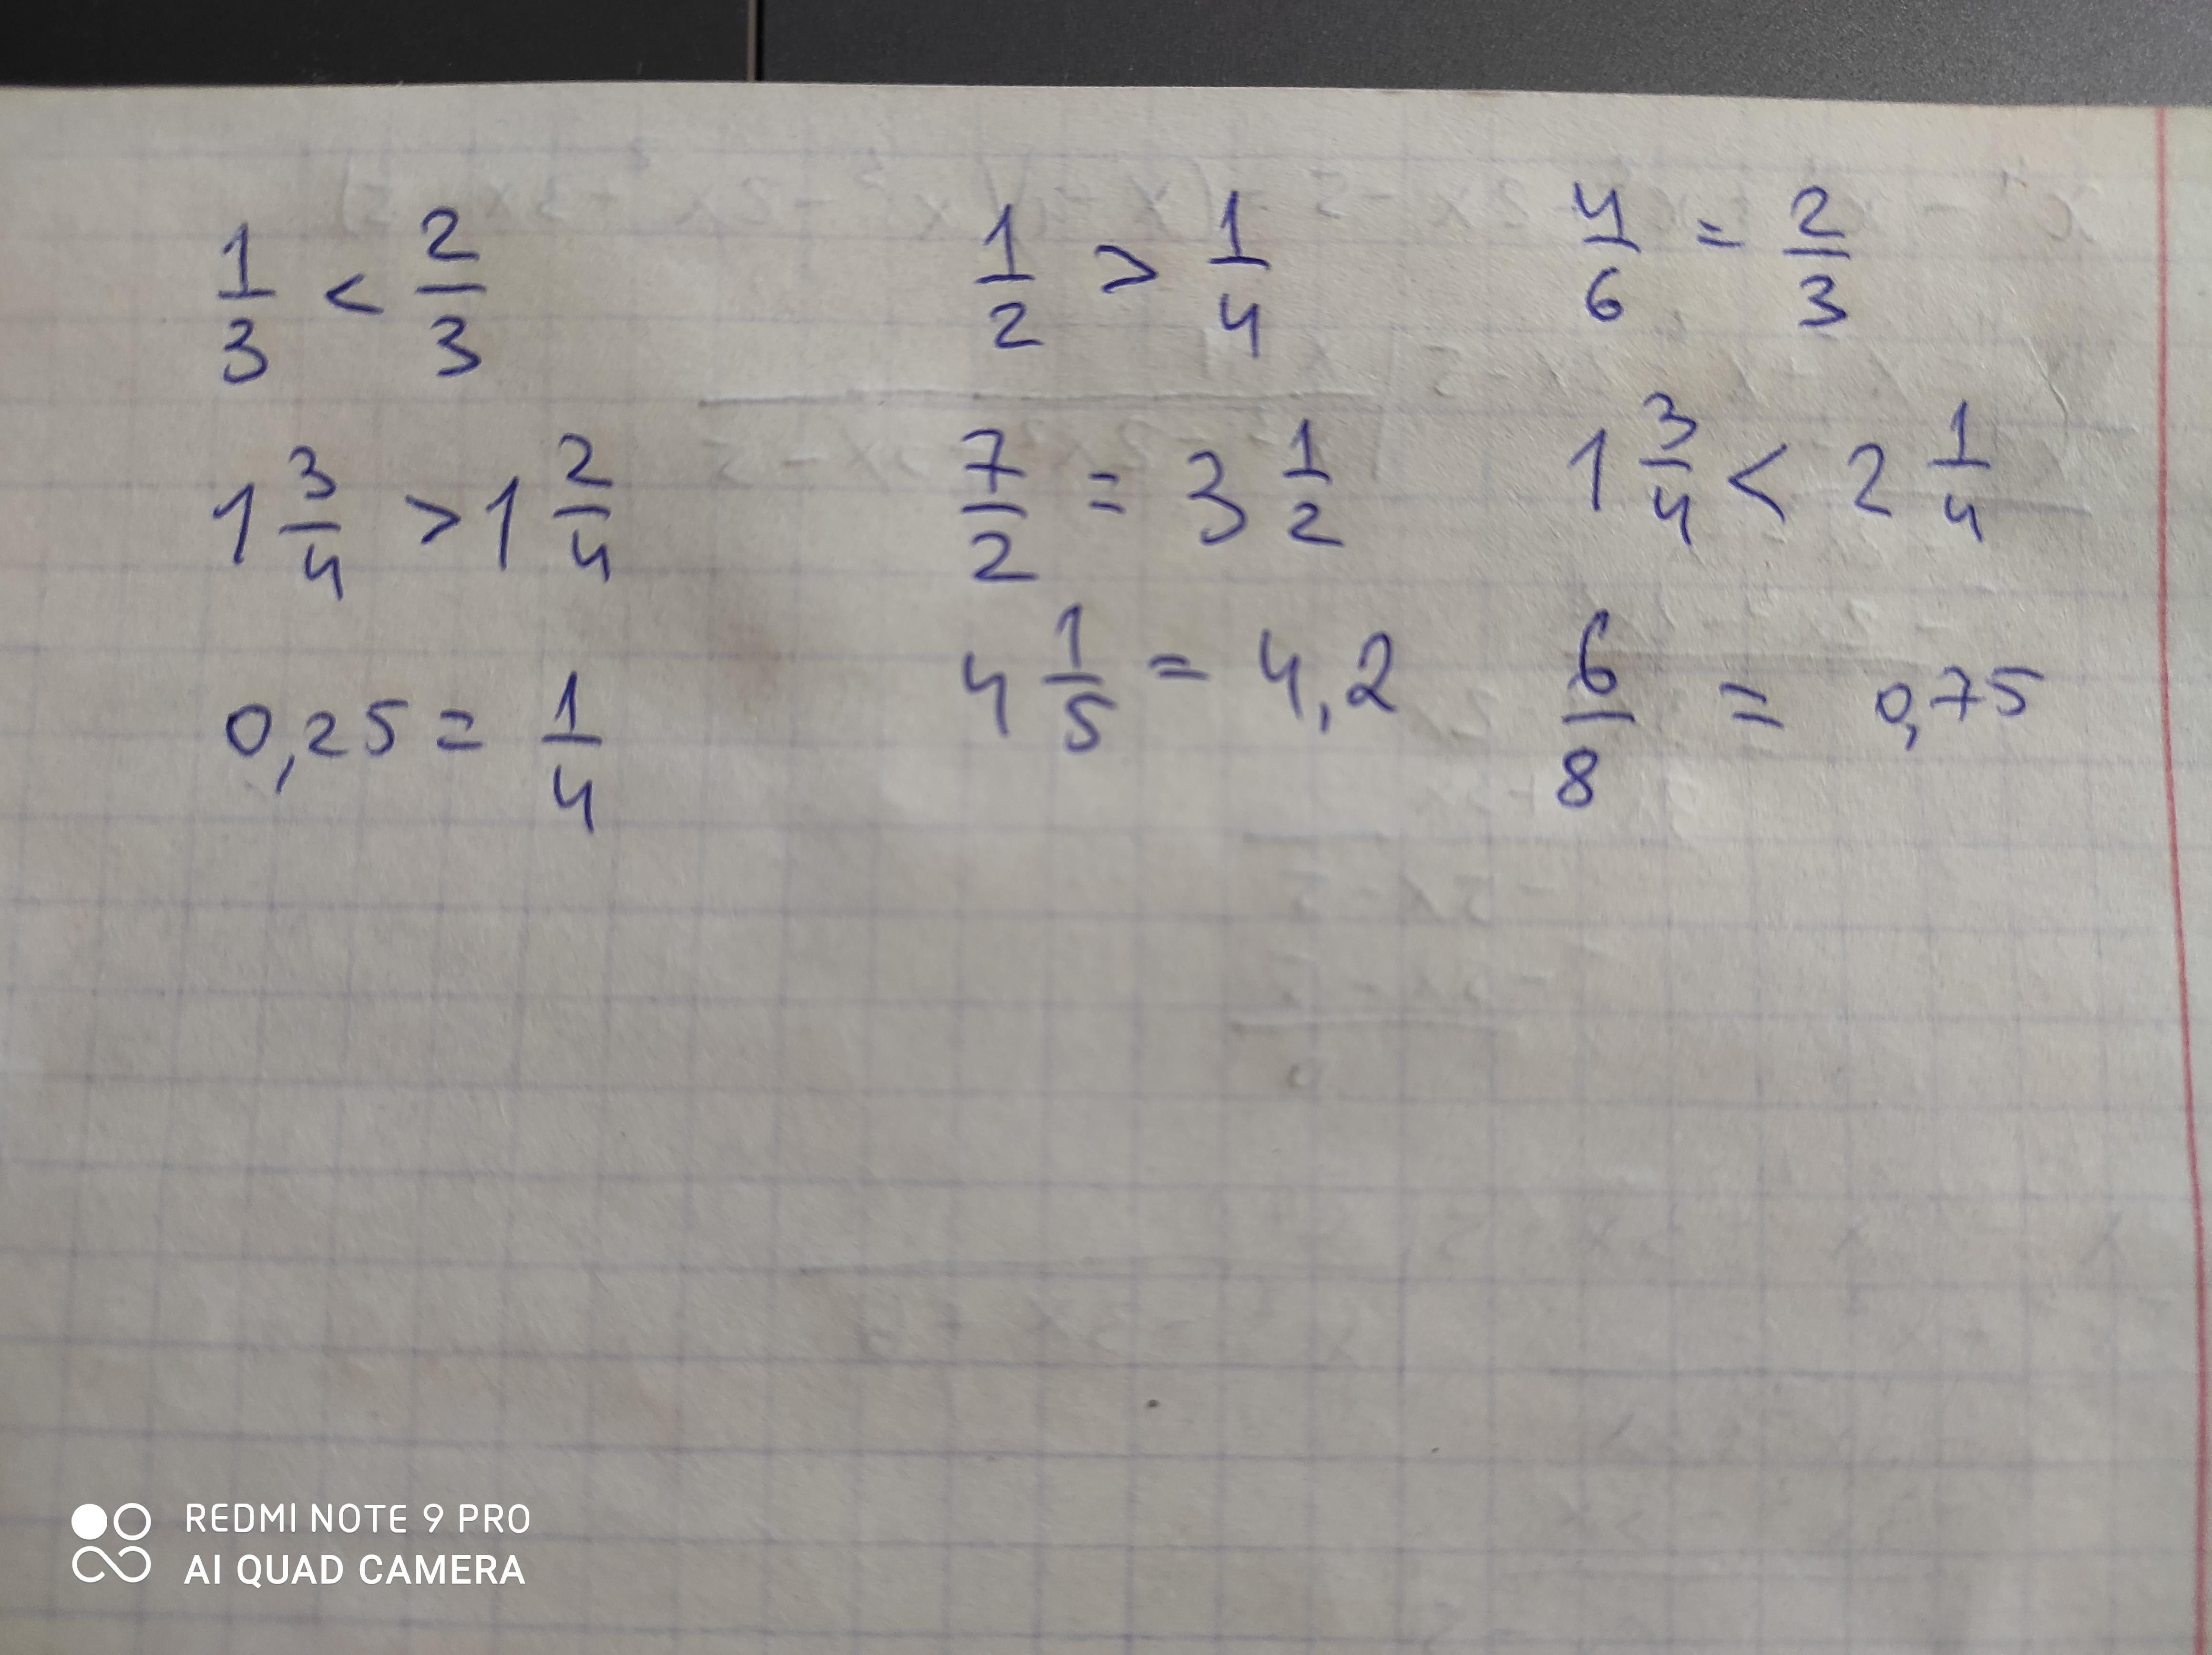 1/3 < 2/3    1/2 > 1/4    4/6 = 2/3
1 3/4 > 1 2/4    7/2 = 3 1/2    1 3/4 < 2 1/4
0,25 = 1/4    4 1/5 = 4,2    6/8 = 0,75
REDMI NOTE 9 PRO
AI QUAD CAMERA